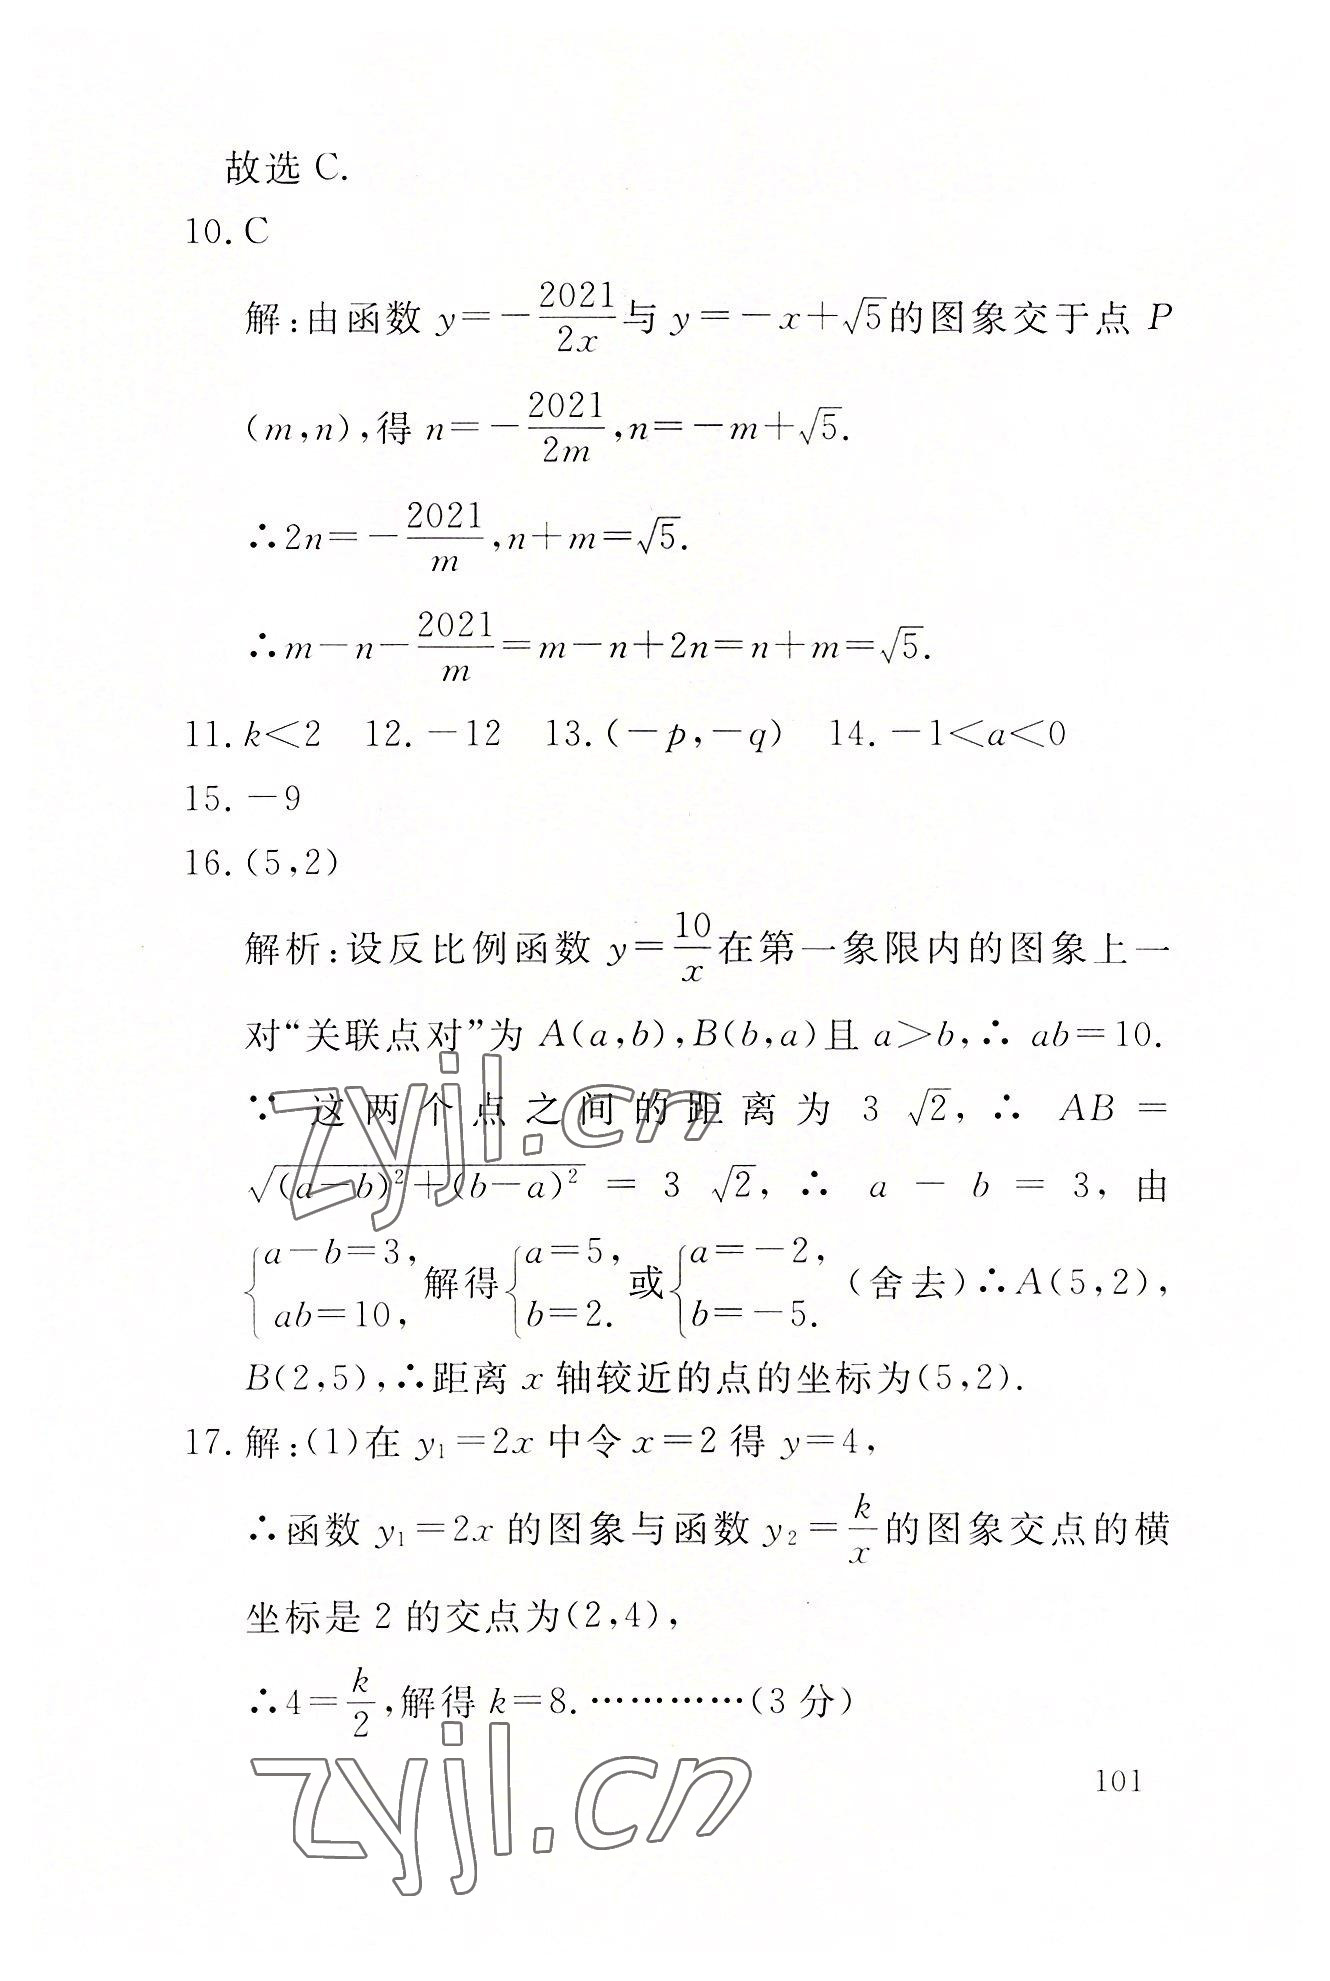 故选 C.
10. C
解:由函数 y=-2021/2x 与 y=-x+√5的图象交于点 P
(m,n),得 n=-2021/2m,n=-m+√5.
∴2n=-2021/m,n+m=√5.
∴m-n-2021/m=m-n+2n=n+m=√5.
11. k<2 12. -12 13. (-p,-q) 14. -1<a<0
15. -9
16. (5,2)
解析:设反比例函数 y=10/x 在第一象限内的图象上一
对“关联点对”为 A(a,b),B(b,a)且 a>b,∴ ab=10.
∵ 这两个点之间的距离为 3 √2, ∴ AB =
√(a-b)²+(b-a)² = 3 √2, ∴ a - b = 3, 由
{a-b=3, ab=10, 解得{a=5, b=2. 或{a=-2, b=-5. (舍去)∴A(5,2),
B(2,5),∴距离 x 轴较近的点的坐标为(5,2).
17. 解:(1)在 y₁=2x 中令 x=2 得 y=4,
∴函数 y₁=2x 的图象与函数 y₂=k/x 的图象交点的横
坐标是 2 的交点为(2,4),
∴4=k/2,解得 k=8. …………(3 分)
101
zyjl.cn
zyjl.cn